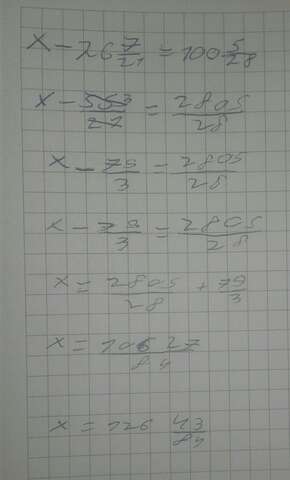 x - 26 7/21 = 100 5/28
x - 553/21 = 2805/28
x - 79/3 = 2805/28
x - 79/3 = 2805/28
x = 2805/28 + 79/3
x = 10627/84
x = 126 43/84